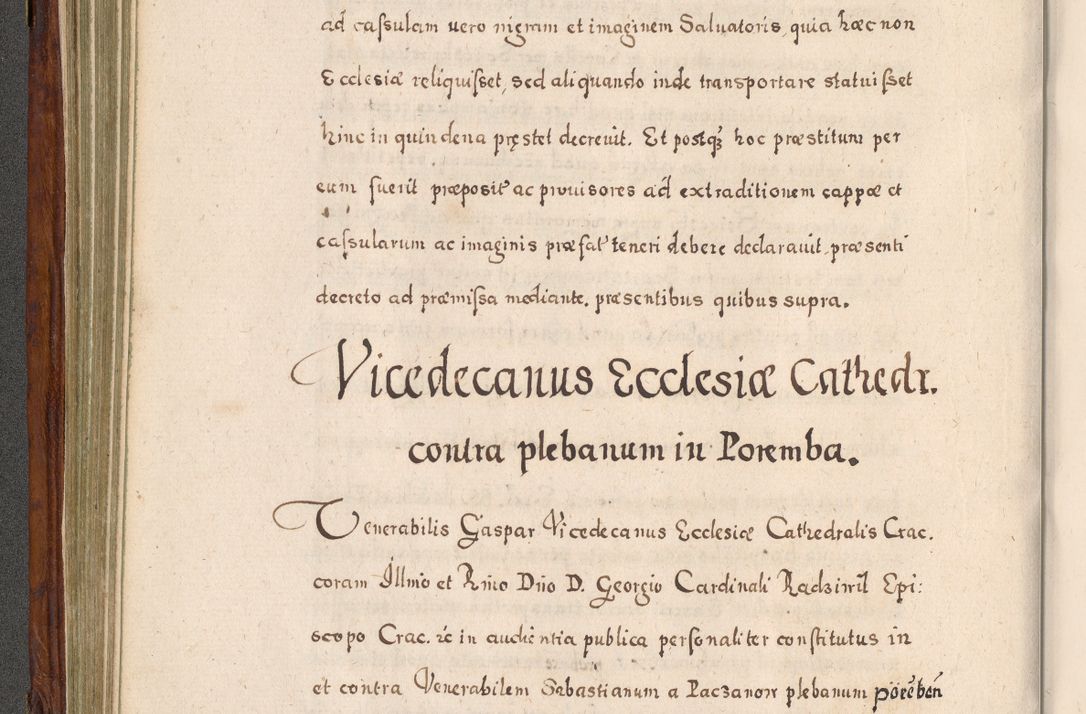 ad caſsulam uero nigram et imaginem Saluatoris, quia hæc non
Ecclesiæ reliquiſset, sed aliquando inde transportare statuiſset
hinc in quindena pręstet decreuit. Et postq́ hoc præstitum per
eum fuerit præposit' ac prouisores ad extraditionem cappæ et
caſsularum ac imaginis præfat' teneri debere declarauit, præsenti
decreto ad præmiſsa mediante. præsentibus quibus supra.
Vicedecanus Ecclesiæ Cathedr.
contra plebanum in Poremba.
Venerabilis Gaspar Vicedecanus Ecclesiæ Cathedralis Crac.
coram Illmo et Rmo Dno D. Georgio Cardinali Radziwil Epi:
scopo Crac. &c in audientia publica personaliter constitutus in
et contra Venerabilem Sabastianum a Paczanow plebanum porēbēn